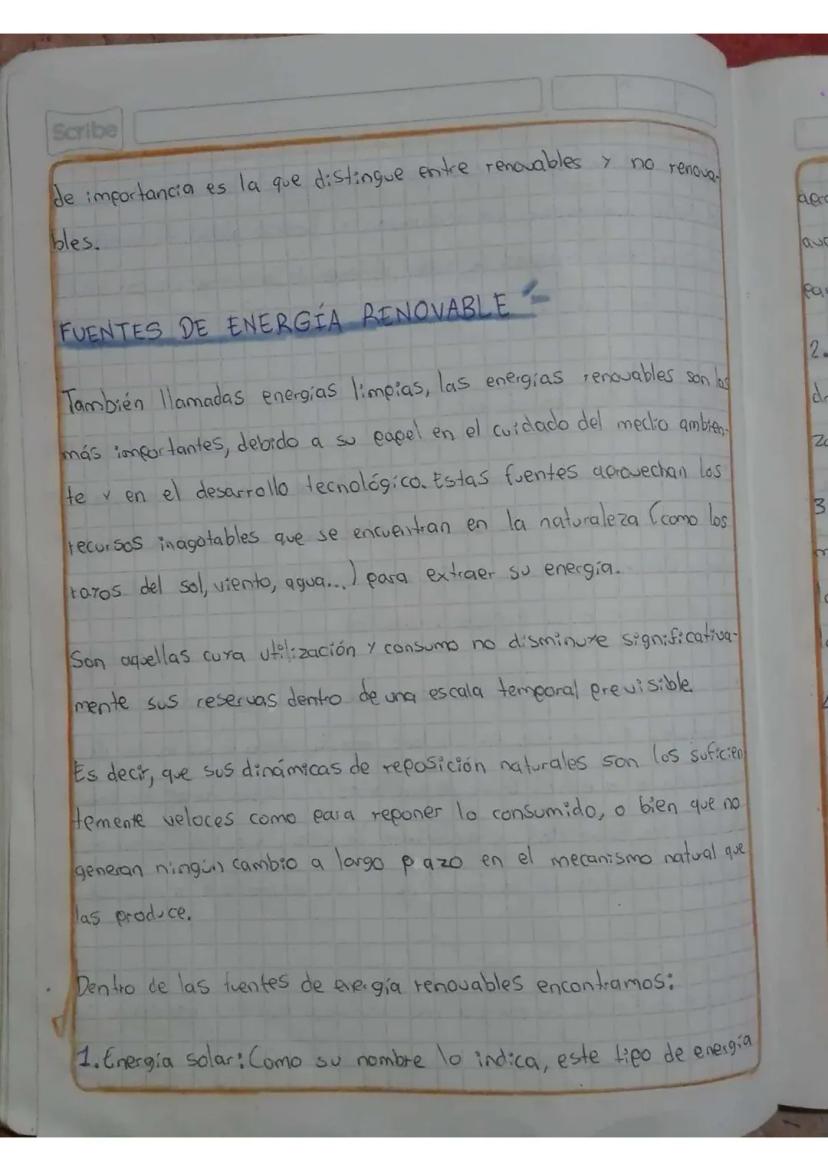 Scribe
de importancia es la que distingue entre renovables y no renova-
bles.
FUENTES DE ENERGÍA RENOVABLE
También llamadas energías limpias, las energías renovables son las
más importantes, debido a su papel en el cuidado del medio ambien-
te y en el desarrollo tecnológico. Estas fuentes aprovechan los
recursos inagotables que se encuentran en la naturaleza (como los
rayos del sol, viento, agua...) para extraer su energía.
Son aquellas cuya utilización y consumo no disminuye significativa-
mente sus reservas dentro de una escala temporal previsible.
Es decir, que sus dinámicas de reposición naturales son los suficien
temente veloces como para reponer lo consumido, o bien que no
generan ningún cambio a largo pazo en el mecanismo natural que
las produce.
Dentro de las fuentes de energía renovables encontramos:
1. Energía solar: Como su nombre lo indica, este tipo de energía
2.
3